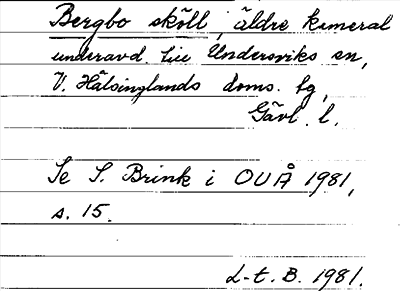 Bergbo sköll, äldre kameral
underavd. till Undersviks sn,
V. Hälsinglands doms. fg,
Gävl. l.
Se S. Brink i OUÅ 1981,
s. 15.
L-t. B. 1981.